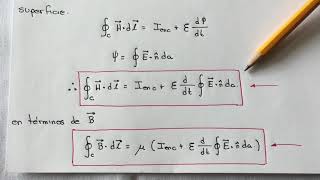 superficie.
∮_C H⃗·dl⃗ = I_enc + ε dΨ/dt
Ψ = ∮ E⃗·n̂ da
∴ ∮_C H⃗·dl⃗ = I_enc + ε d/dt ∮ E⃗·n̂ da
en términos de B⃗
∮_C B⃗·dl⃗ = μ (I_enc + ε d/dt ∮ E⃗·n̂ da)